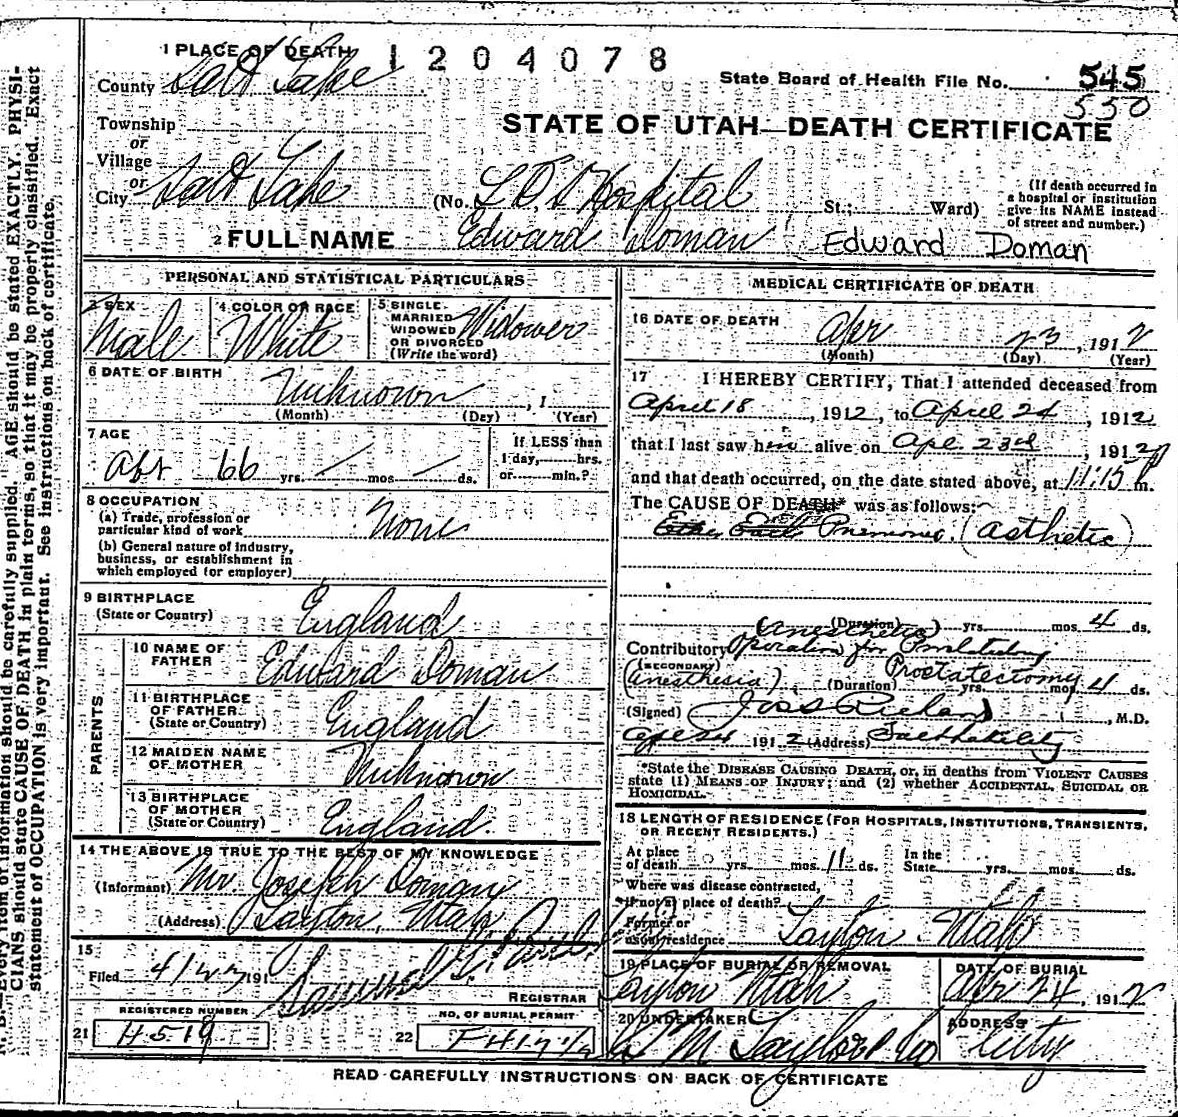 1 PLACE OF DEATH
1204078
County Salt Lake
State Board of Health File No. 545
550
Township
or
Village
STATE OF UTAH—DEATH CERTIFICATE
or
City Salt Lake (No. L D S Hospital St.; Ward)
(If death occurred in a hospital or institution give its NAME instead of street and number.)
2 FULL NAME Edward Doman Edward Doman
PERSONAL AND STATISTICAL PARTICULARS
3 SEX Male
4 COLOR OR RACE White
5 SINGLE MARRIED WIDOWED OR DIVORCED (Write the word) Widower
6 DATE OF BIRTH Unknown , 1
(Month) (Day) (Year)
7 AGE abt 66 yrs. — mos. — ds.
If LESS than 1 day, hrs. or min.?
8 OCCUPATION
(a) Trade, profession or particular kind of work None
(b) General nature of industry, business, or establishment in which employed (or employer)
9 BIRTHPLACE
(State or Country) England
PARENTS
10 NAME OF FATHER Edward Doman
11 BIRTHPLACE OF FATHER (State or Country) England
12 MAIDEN NAME OF MOTHER Unknown
13 BIRTHPLACE OF MOTHER (State or Country) England
14 THE ABOVE IS TRUE TO THE BEST OF MY KNOWLEDGE
(Informant) Mr Joseph Doman
(Address) Layton, Utah
15
Filed 4/23 191
Samuel G. Paul
REGISTRAR
REGISTERED NUMBER
21 H519
NO. OF BURIAL PERMIT
22
MEDICAL CERTIFICATE OF DEATH
16 DATE OF DEATH Apr 23, 1912
(Month) (Day) (Year)
17 I HEREBY CERTIFY, That I attended deceased from
April 18, 1912, to April 24, 1912
that I last saw him alive on Apl 23rd, 1912
and that death occurred, on the date stated above, at 11:15 P m.
The CAUSE OF DEATH* was as follows:
Pnemonia (asthetic)
(anesthetic)
(Duration) yrs. mos. 4 ds.
Contributory Operation for
(SECONDARY) Prostatectomy
(anesthesia) (Duration) yrs. mos. 4 ds.
(Signed) Jos S Richards, M.D.
Apl 24 1912 (Address) Salt Lake City
*State the DISEASE CAUSING DEATH, or, in deaths from VIOLENT CAUSES
state (1) MEANS OF INJURY; and (2) whether ACCIDENTAL, SUICIDAL OR
HOMICIDAL.
18 LENGTH OF RESIDENCE (FOR HOSPITALS, INSTITUTIONS, TRANSIENTS,
OR RECENT RESIDENTS.)
At place of death yrs. mos. 11 ds. In the State yrs. mos. ds.
Where was disease contracted,
if not at place of death?
Former or
usual residence Layton, Utah
19 PLACE OF BURIAL OR REMOVAL
Layton Utah
DATE OF BURIAL
Apr 24, 1912
20 UNDERTAKER
S M Taylor & Co
ADDRESS
City
READ CAREFULLY INSTRUCTIONS ON BACK OF CERTIFICATE
N. B.—Every item of information should be carefully supplied. AGE should be stated EXACTLY. PHYSI-
CIANS should state CAUSE OF DEATH in plain terms, so that it may be properly classified. Exact
statement of OCCUPATION is very important. See instructions on back of certificate.